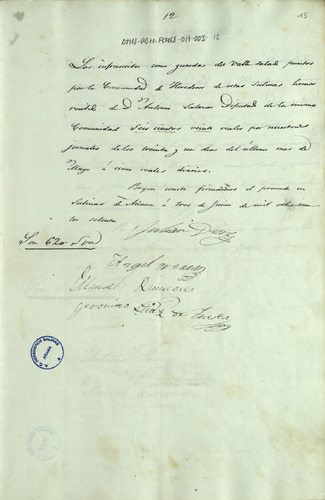 12
15
ATHJ-0011-FCHSJ-017-003-12
Los infrascritos como guardas del Valle salado puestos
por la Comunidad de Herederos de estas Salinas hemos
recibido de Dn Antonio Salazar Diputado de la misma
Comunidad Seis cientos veinte reales por nuestros
jornales de los treinta y un dias del último mes de
Mayo á cinco reales diarios.
Porque conste firmamos el presente en
Salinas de Añana á tres de Junio de mil ochocien
tos setenta
Julian
Son 620 rvn
Angel
Manuel
Geronimo
SALINAS
AÑANA